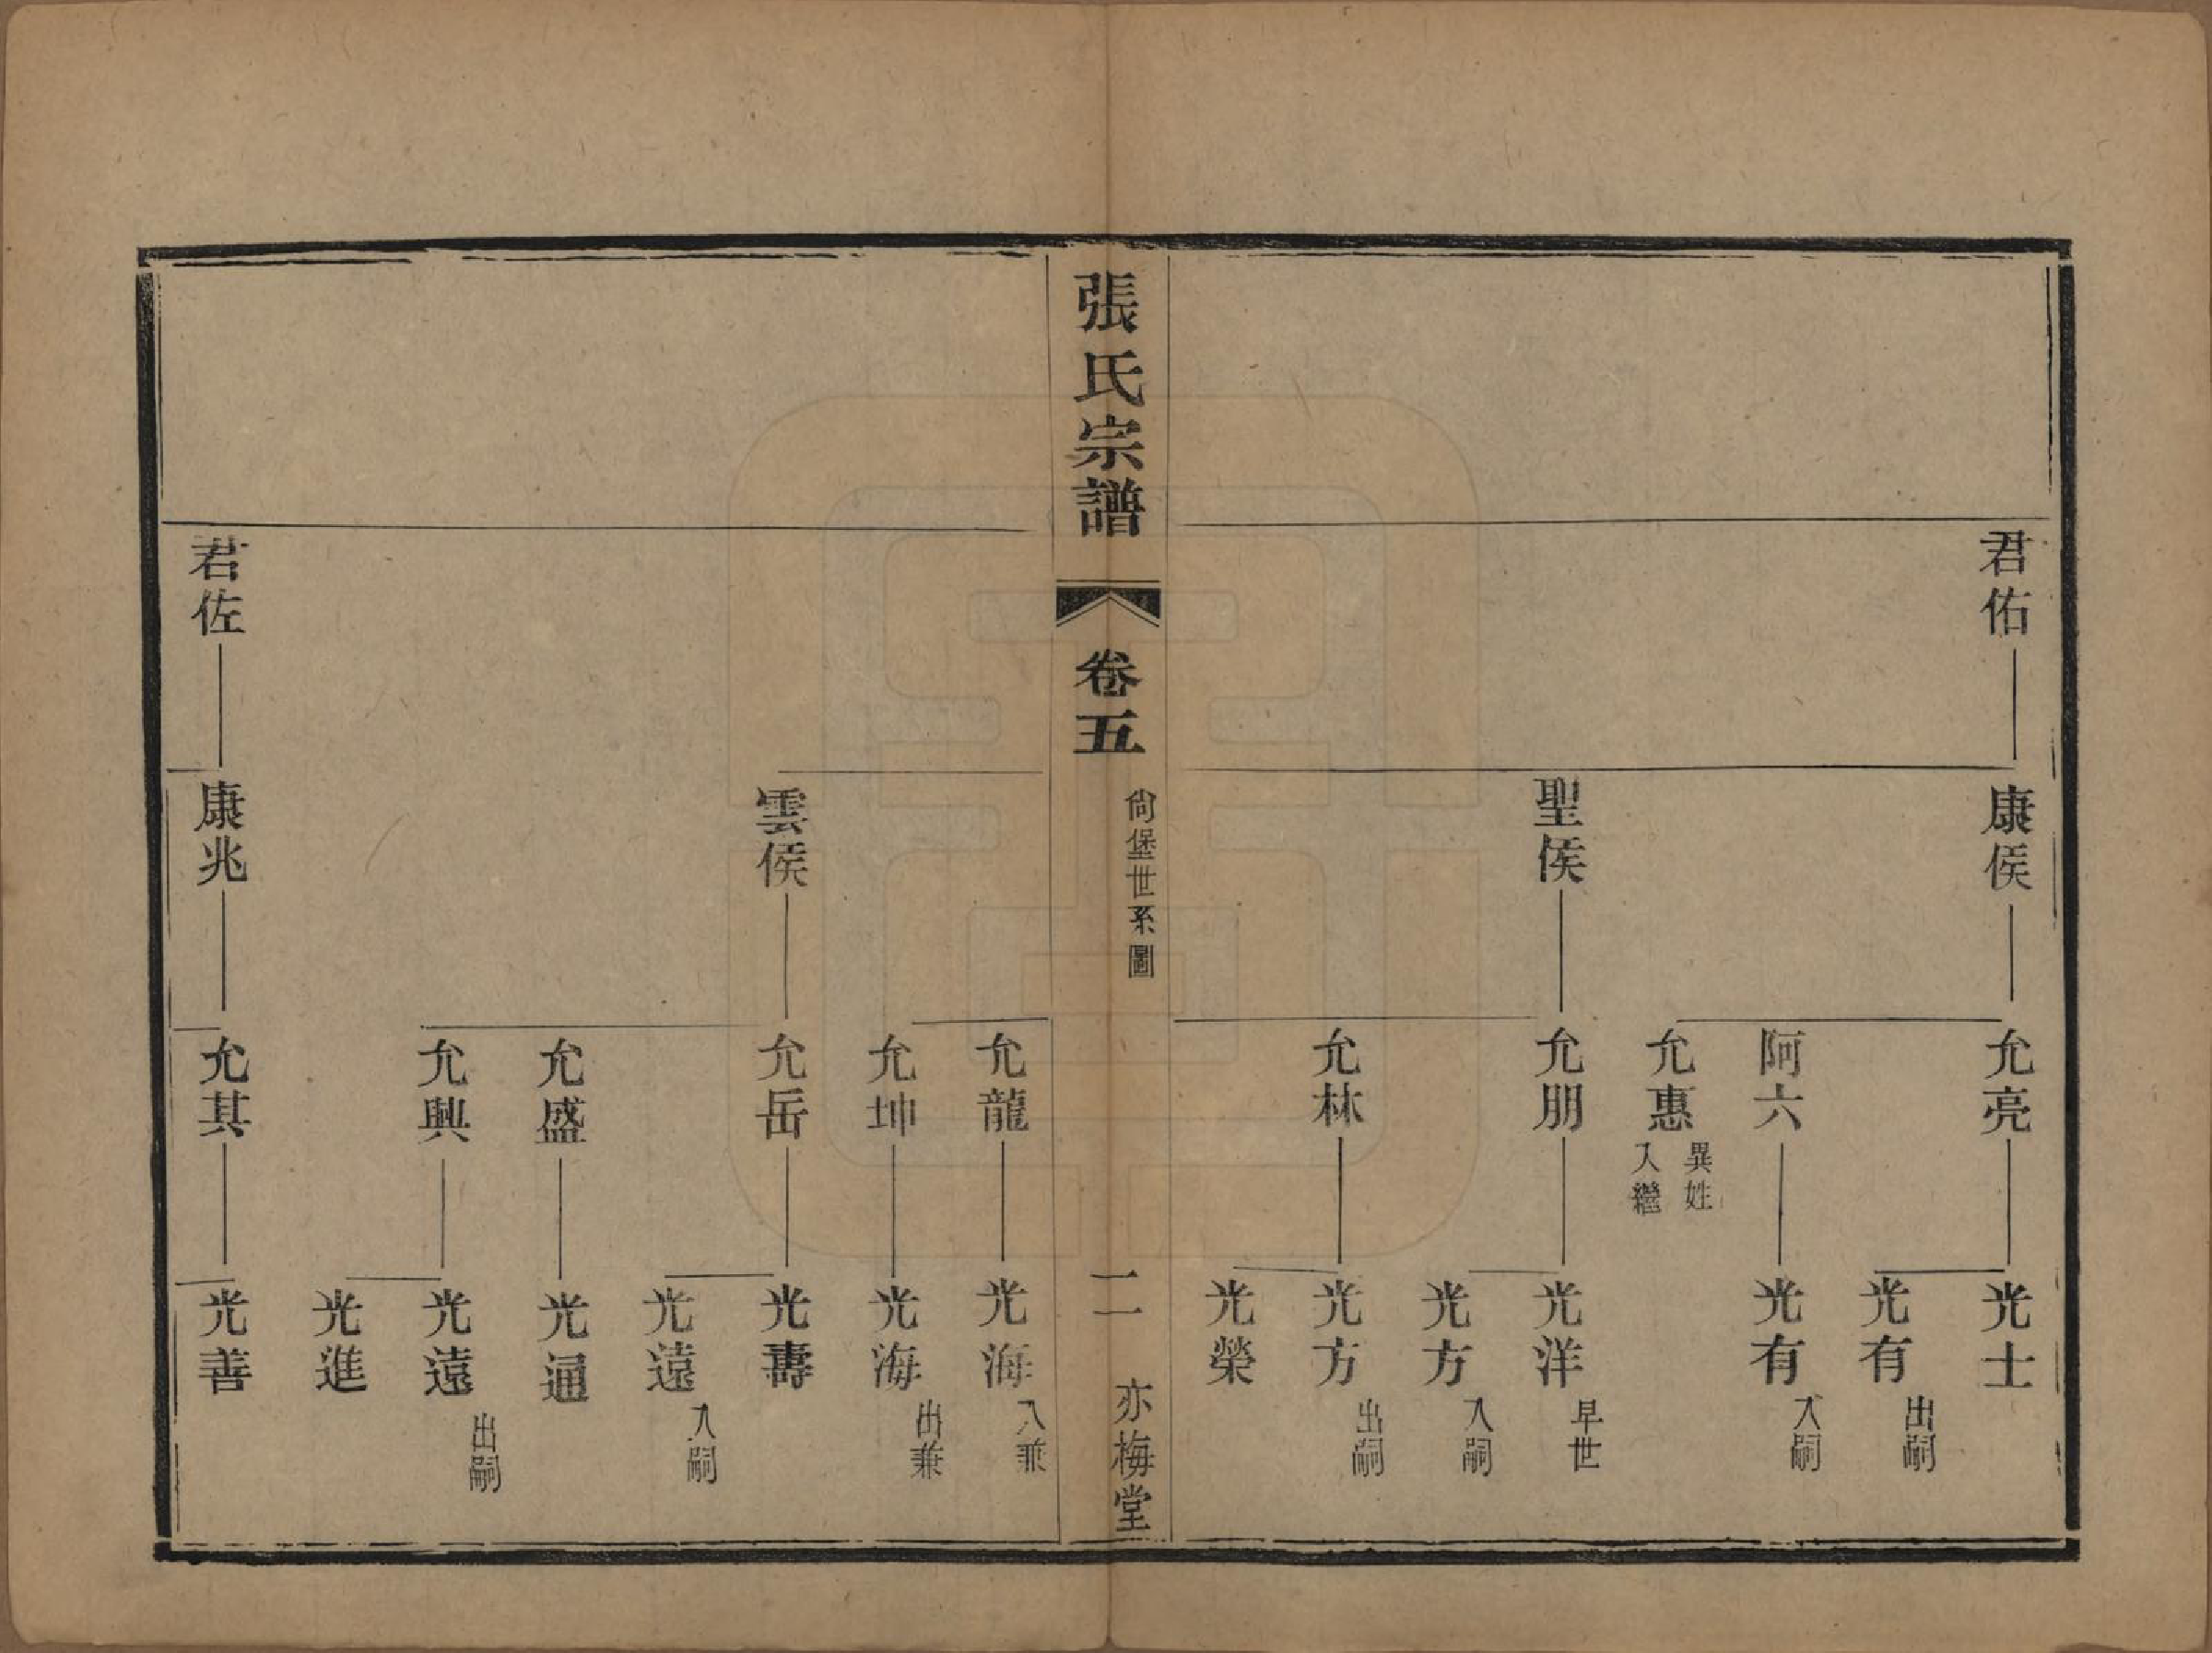 君佑
康侯
允亮
光士
光有
出嗣
阿六
光有
入嗣
允惠
異姓
入繼
聖侯
允朋
光洋
早世
光方
入嗣
允林
光方
出嗣
光榮
張氏宗譜
卷五
尙堡世系圖
二
亦梅堂
允龍
光海
入兼
允坤
光海
出兼
雲侯
允岳
光壽
光遠
入嗣
允盛
光通
允興
光遠
出嗣
光進
君佐
康兆
允其
光善